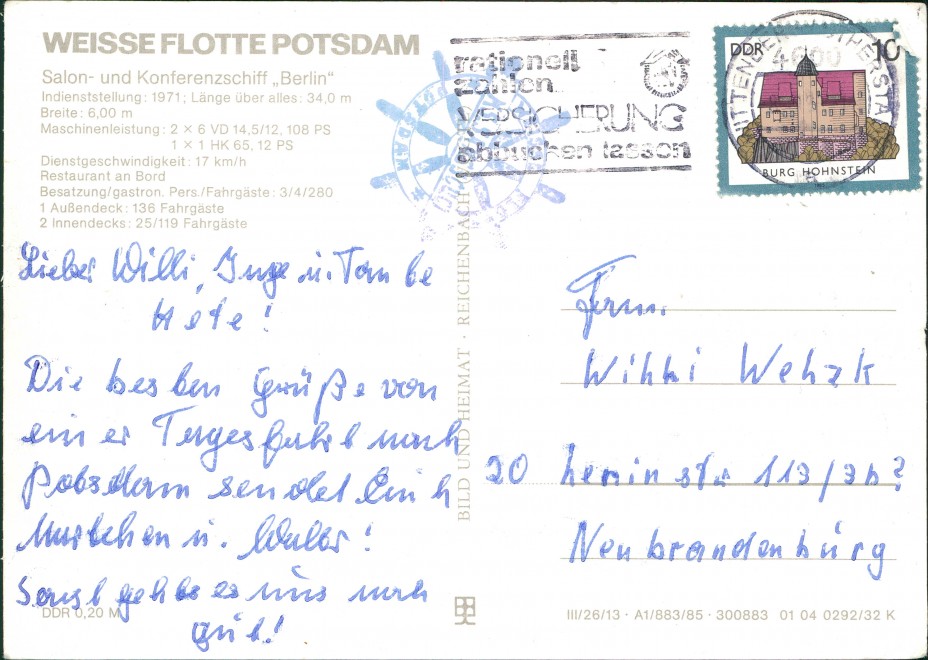 WEISSE FLOTTE POTSDAM
Salon- und Konferenzschiff „Berlin"
Indienststellung: 1971; Länge über alles: 34,0 m
Breite: 6,00 m
Maschinenleistung: 2 × 6 VD 14,5/12, 108 PS
1 × 1 HK 65, 12 PS
Dienstgeschwindigkeit: 17 km/h
Restaurant an Bord
Besatzung/gastron. Pers./Fahrgäste: 3/4/280
1 Außendeck: 136 Fahrgäste
2 Innendecks: 25/119 Fahrgäste
Lieber Willi, Inge u. Tante
Hete!
Die besten Grüße von
einer Tagesfahrt nach
Potsdam sendet Euch
u. Walter!
Sonst geht es uns noch
gut!
DDR 0,20 M
BILD UND HEIMAT · REICHENBACH
rationell
zahlen
VERSICHERUNG
abbuchen lassen
4600
DDR 10
BURG HOHNSTEIN
Fam.
Willi
20 Leninstr 113
Neubrandenburg
III/26/13 · A1/883/85 · 300883 01 04 0292/32 K